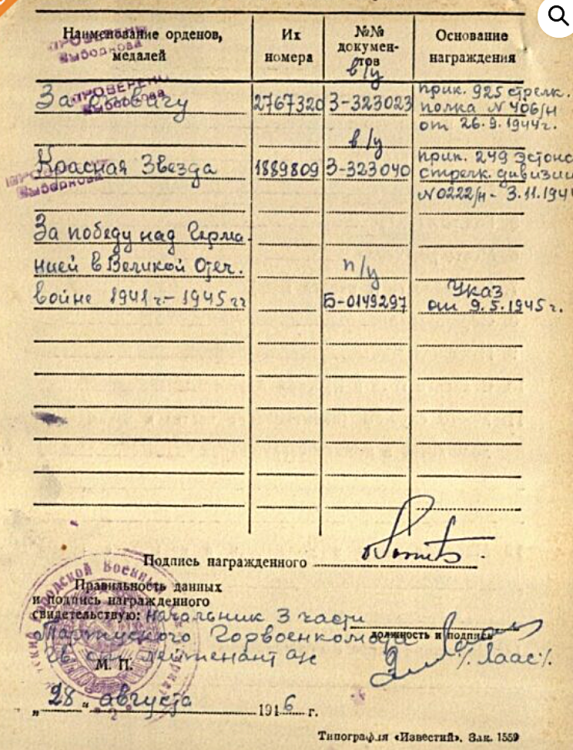 Наименование орденов, медалей
Их номера
№№ документов
Основание награждения
ПРОВЕРЕНО
Выборнова
За отвагу
2767320
в/у
З-323023
прик. 925 стрелк.
полка N 406/н
от 26.9.1944г.
ПРОВЕРЕНО
Выборнова
Красная Звезда
1889809
в/у
З-323040
прик. 249 эстонс
стрелк. дивизии
N0222/н - 3.11.194
Выборнова
За победу над Герма-
нией в Великой Отеч.
войне 1941 г.- 1945 гг
п/у
Б-0149297
Указ
от 9.5.1945г.
Подпись награжденного
Правильность данных
и подпись награжденного
свидетельствую: Начальник 3 части
Тартуского Горвоенкомата
должность и подпись
лейтенант а/с
/Лаас/.
М. П.
„28" августа 1946 г.
Типография «Известий». Зак. 1559